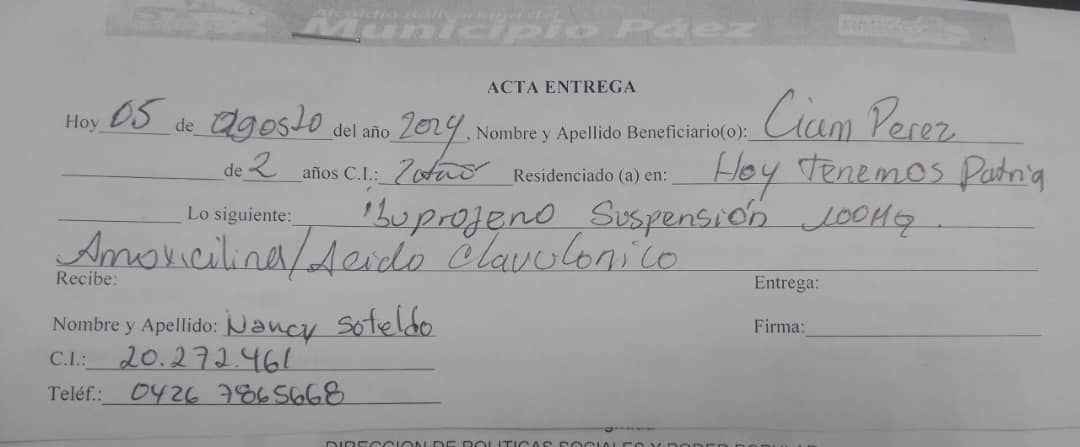 Municipio Páez
ACTA ENTREGA
Hoy 05 de agosto del año 2024, Nombre y Apellido Beneficiario(o): Ciam Perez
de 2 años C.I.: Residenciado (a) en: Hoy Tenemos Patria
Lo siguiente: Ibuprofeno Suspensión 100MG.
Amoxicilina/Acido Clavulonico
Recibe: Entrega:
Nombre y Apellido: Nancy Soteldo Firma:
C.I.: 20.272.461
Teléf.: 0426 7865668